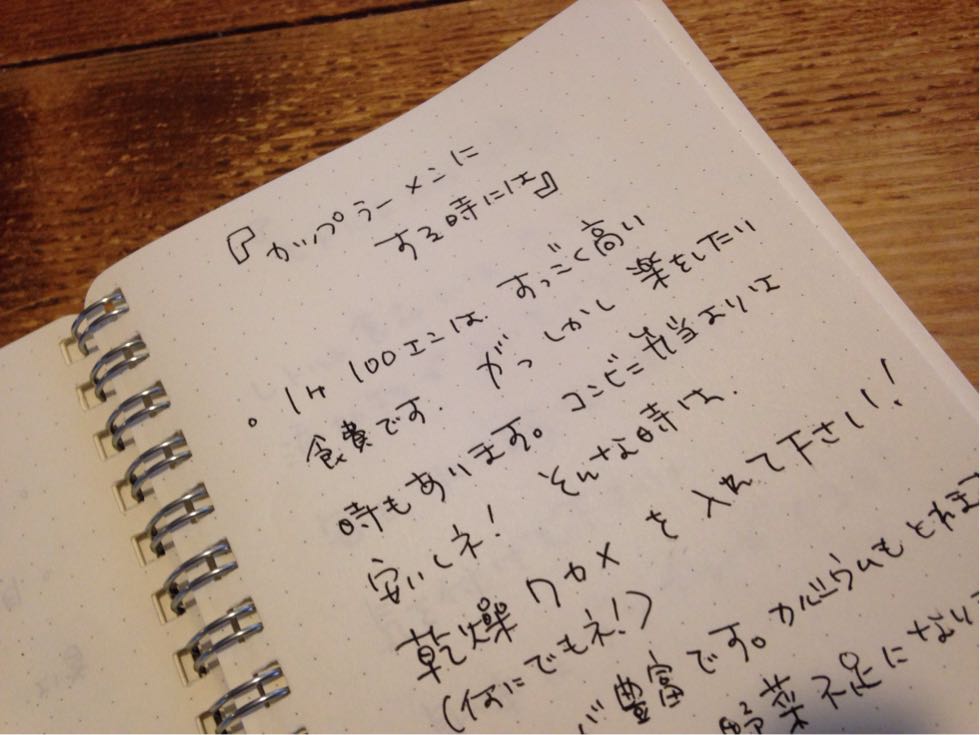 『カップラーメンに
する時には』
。1ヶ100エンは、すっごく高い
食費です。がっしかし楽をしたい
時もあります。コンビニ弁当よりは
安いしネ! そんな時は、
乾燥ワカメを入れて下さい!
(何にでもネ!)
が豊富です。カルシウムもとれま
野菜不足になり